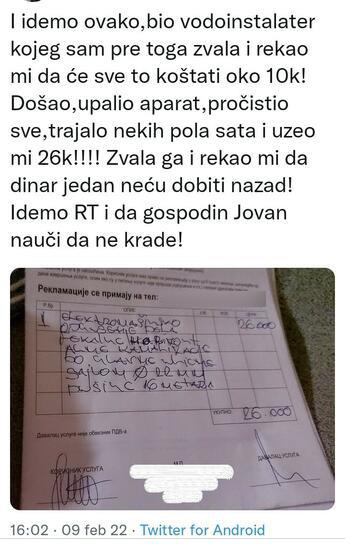 I idemo ovako,bio vodoinstalater
kojeg sam pre toga zvala i rekao
mi da će sve to koštati oko 10k!
Došao,upalio aparat,pročistio
sve,trajalo nekih pola sata i uzeo
mi 26k!!!! Zvala ga i rekao mi da
dinar jedan neću dobiti nazad!
Idemo RT i da gospodin Jovan
nauči da ne krade!
Рекламације се примају на тел:
1 26000
ДО ГЛАВНЕ
САЈЛОМ Ø 22 мм
16 МЕТАРА
26.000
Давалац услуге није обвезник ПДВ-а
КОРИСНИК УСЛУГА
М.П.
ДАВАЛАЦ УСЛУГА
16:02 · 09 feb 22 · Twitter for Android